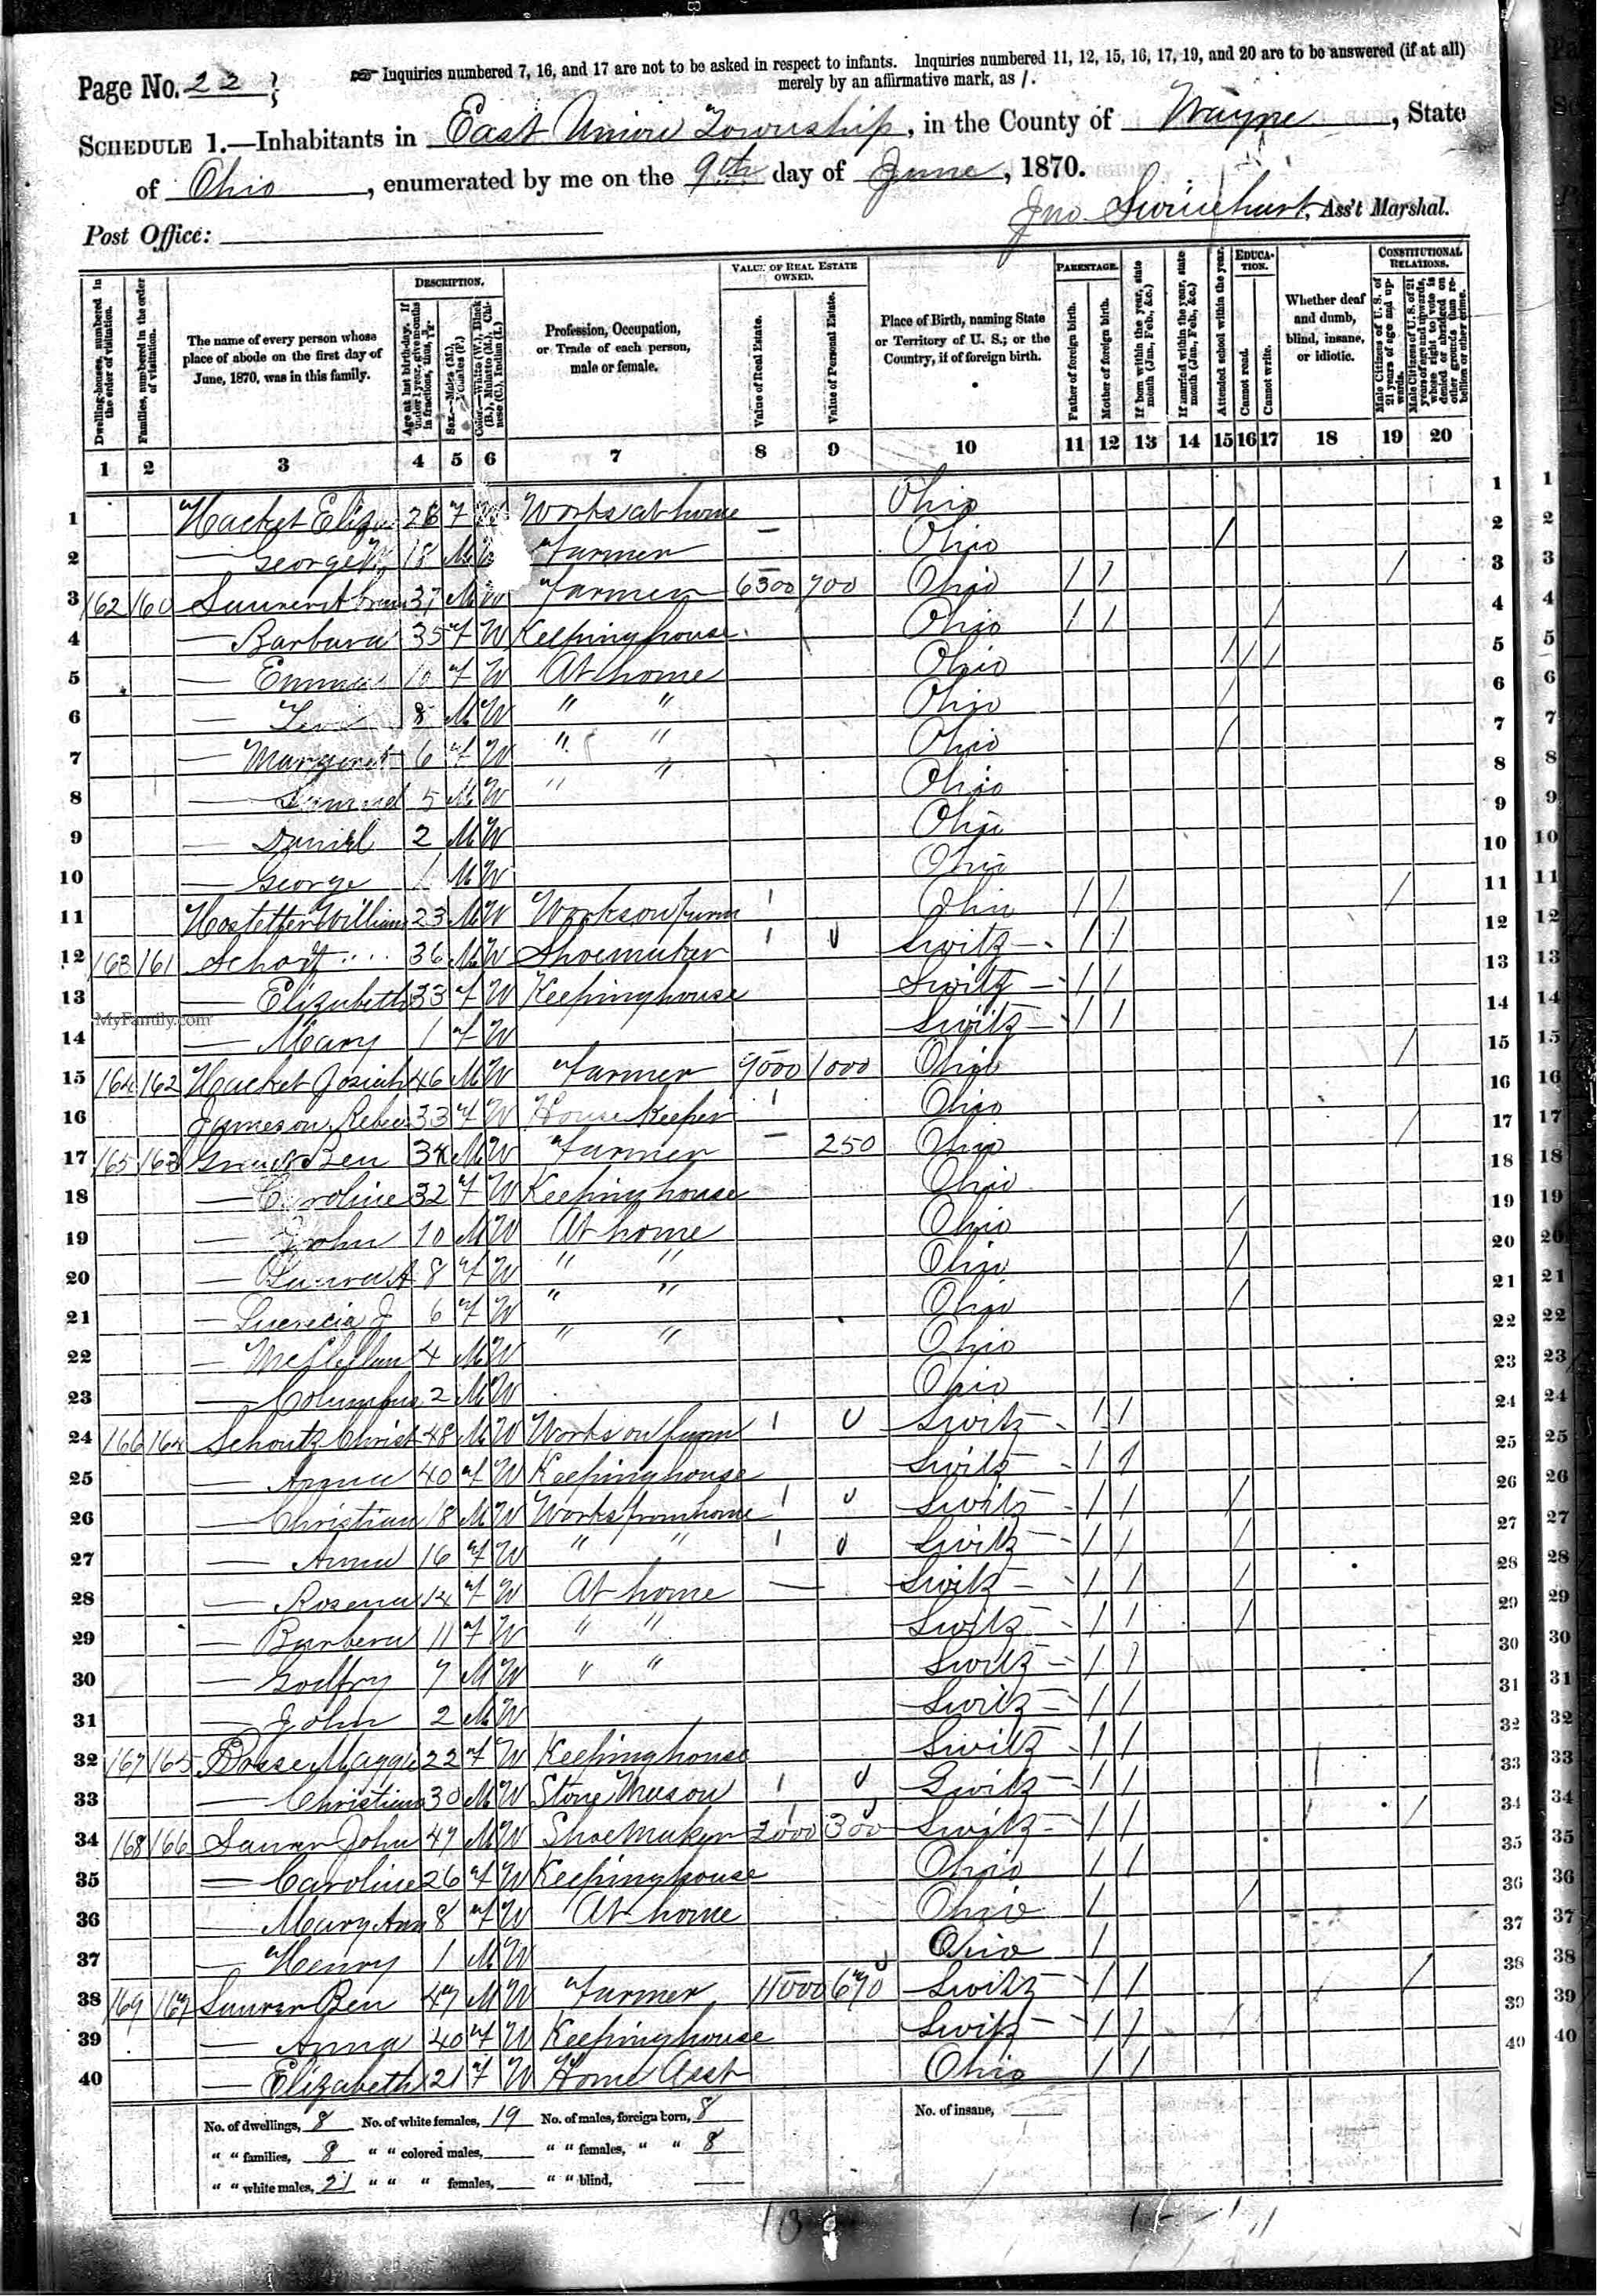 Page No. 22
Inquiries numbered 7, 16, and 17 are not to be asked in respect to infants. Inquiries numbered 11, 12, 15, 16, 17, 19, and 20 are to be answered (if at all)
merely by an affirmative mark, as /.
SCHEDULE 1.—Inhabitants in East Union Township, in the County of Wayne, State
of Ohio, enumerated by me on the 9th day of June, 1870.
Post Office:
Jno Swinehart, Ass't Marshal.
Dwelling-houses, numbered in the order of visitation.
Families, numbered in the order of visitation.
The name of every person whose place of abode on the first day of June, 1870, was in this family.
DESCRIPTION.
Age at last birthday. If under 1 year, give months in fractions, thus,
Sex.—Males (M.), Females (F.)
Color.—White (W.), Black (B.), Mulatto (M.), Chinese (C.), Indian (I.)
Profession, Occupation, or Trade of each person, male or female.
VALUE OF REAL ESTATE OWNED.
Value of Real Estate.
Value of Personal Estate.
Place of Birth, naming State or Territory of U. S.; or the Country, if of foreign birth.
PARENTAGE.
Father of foreign birth.
Mother of foreign birth.
If born within the year, state month (Jan., Feb., &c.)
If married within the year, state month (Jan., Feb., &c.)
Attended school within the year.
EDUCATION.
Cannot read.
Cannot write.
Whether deaf and dumb, blind, insane, or idiotic.
CONSTITUTIONAL RELATIONS.
Male Citizens of U. S. of 21 years of age and upwards.
Male Citizens of U. S. of 21 years of age and upwards, whose right to vote is denied or abridged on other grounds than rebellion or other crime.
1 2 3 4 5 6 7 8 9 10 11 12 13 14 15 16 17 18 19 20
1 Hacket Eliza 26 F W Works at home Ohio 1
2 — George W 18 M Farmer — Ohio / 2
3 162 160 Saurer 37 M W Farmer 6300 700 Ohio / / / 3
4 — Barbara 35 F W Keeping house Ohio / / / 4
5 — Emma 10 F W At home Ohio / / / 5
6 — Levi 8 M W " " Ohio / 6
7 — Margaret 6 F W " " Ohio / 7
8 — Samuel 5 M W " " Ohio 8
9 — Daniel 2 M W Ohio 9
10 — George 1 M W Ohio 10
11 Hostetter William 23 M W Works on farm Ohio / / / 11
12 163 161 36 M W Shoemaker Switz / / 12
13 — Elizabeth 33 F W Keeping house Switz / / 13
14 — Mary 1 F W Switz / / 14
15 164 162 Hacket Josiah 46 M W Farmer 9000 1000 Ohio / 15
16 Jameson Rebec 33 F W House Keeper Ohio 16
17 165 163 Ben 34 M W Farmer — 250 Ohio / 17
18 — Caroline 32 F W Keeping house Ohio 18
19 — John 10 M W At home Ohio / 19
20 — Laura A 8 F W " " Ohio / 20
21 — Lucrecia J 6 F W " " Ohio / 21
22 — McClellan 4 M W " " Ohio 22
23 — Columbus 2 M W Ohio 23
24 166 164 Schoutz Christ 48 M W Works on farm Switz / / 24
25 — Anna 40 F W Keeping house Switz / / 25
26 — Christian 18 M W Works from home Switz / / / 26
27 — Anna 16 F W " " Switz / / / 27
28 — Rosena 14 F W At home — Switz / / / 28
29 — Barbera 11 F W " " Switz / / / 29
30 — Godfry 7 M W " " Switz / / 30
31 — John 2 M W Switz / / 31
32 167 165 Maggie 22 F W Keeping house Switz / / 32
33 — Christian 30 M W Stone Mason Switz / / 33
34 168 166 Saurer John 47 M W Shoe Maker 2000 300 Switz / / / 34
35 — Caroline 26 F W Keeping house Ohio / / 35
36 — Mary Ann 8 F W At home Ohio / / 36
37 — Henry 1 M W Ohio / 37
38 169 167 Saurer Ben 47 M W Farmer 11000 670 Switz / / / 38
39 — Anna 40 F W Keeping house Switz / / 39
40 — Elizabeth 21 F W Home Asst Ohio / / 40
MyFamily.com
No. of dwellings, 8 No. of white females, 19 No. of males, foreign born, 8 No. of insane,
" " families, 8 " " colored males, " " females, " " 8
" " white males, 21 " " " females, " " blind,